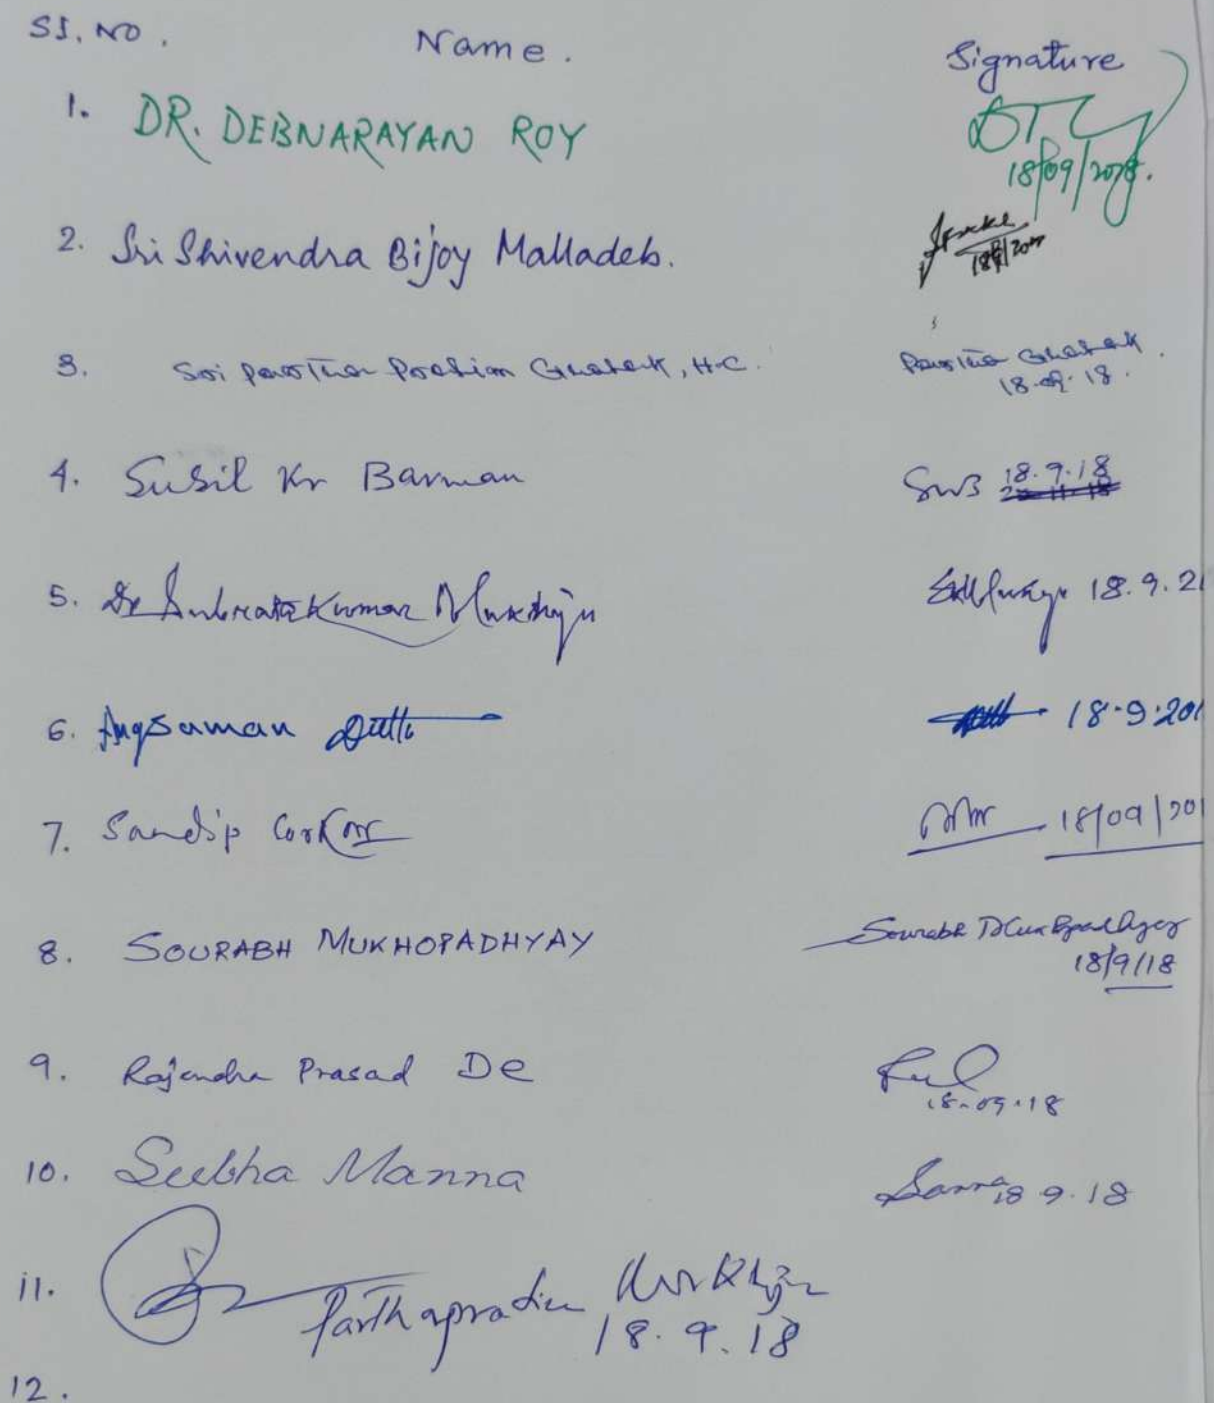 Sl. No. Name. Signature
1. DR. DEBNARAYAN ROY
18/09/2018.
2. Sri Shivendra Bijoy Malladeb.
3. Sri Partha Pratim Ghatak, H.C. Partha Ghatak.
18.09.18.
4. Susil Kr Barman SKB 18.9.18
5. Dr Subrata Kumar Mukherjee 18.9.20
6. Angsuman Dutta 18.9.201
7. Sandip 18/09/201
8. SOURABH MUKHOPADHYAY Sourabh Mukhopadhyay
18/9/18
9. Rajendra Prasad De
18.09.18
10. Subha Manna 18 9.18
11. Parthapratim
18.9.18
12.